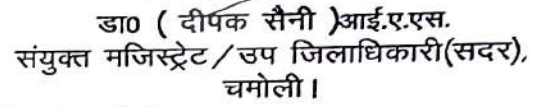 डा0 ( दीपक सैनी )आई.ए.एस.
संयुक्त मजिस्ट्रेट/उप जिलाधिकारी(सदर),
चमोली।